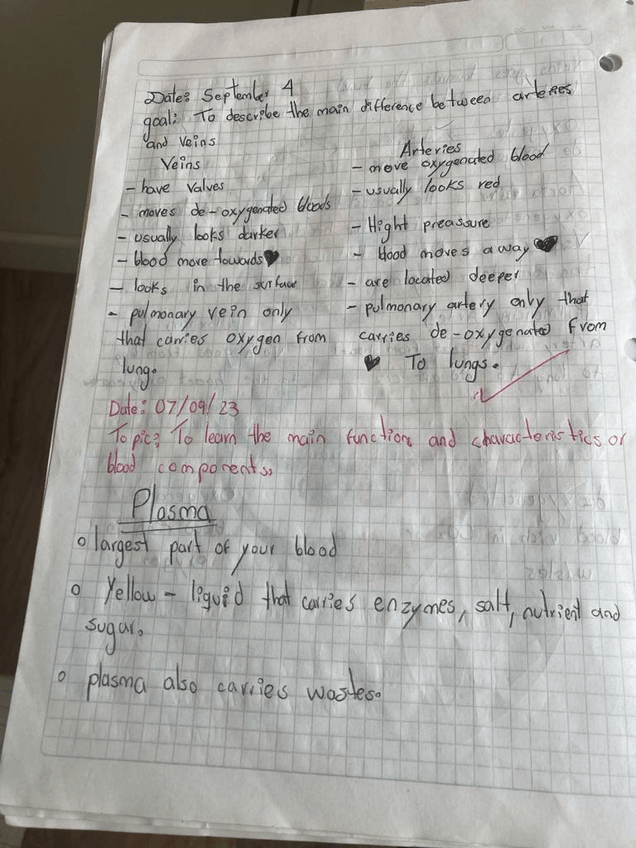 Date: September 4
goal: To describe the main difference between arteries
and veins
Veins
- have valves
- moves de-oxygenated bloods
- usually looks darker
- blood move towards ♥
- looks in the surface
- pulmonary vein only
that carries oxygen from
lung.
Arteries
- move oxygenated blood
- usually looks red
- Hight preassure
- blood moves away ♥
- are located deeper
- pulmonary artery only that
carries de-oxygenated from
♥ To lungs.
Date: 07/09/23
Topic: To learn the main function and characteristics of
blood components
Plasma
o largest part of your blood
o Yellow - liquid that carries enzymes, salt, nutrient and
sugar.
o plasma also carries wastes.